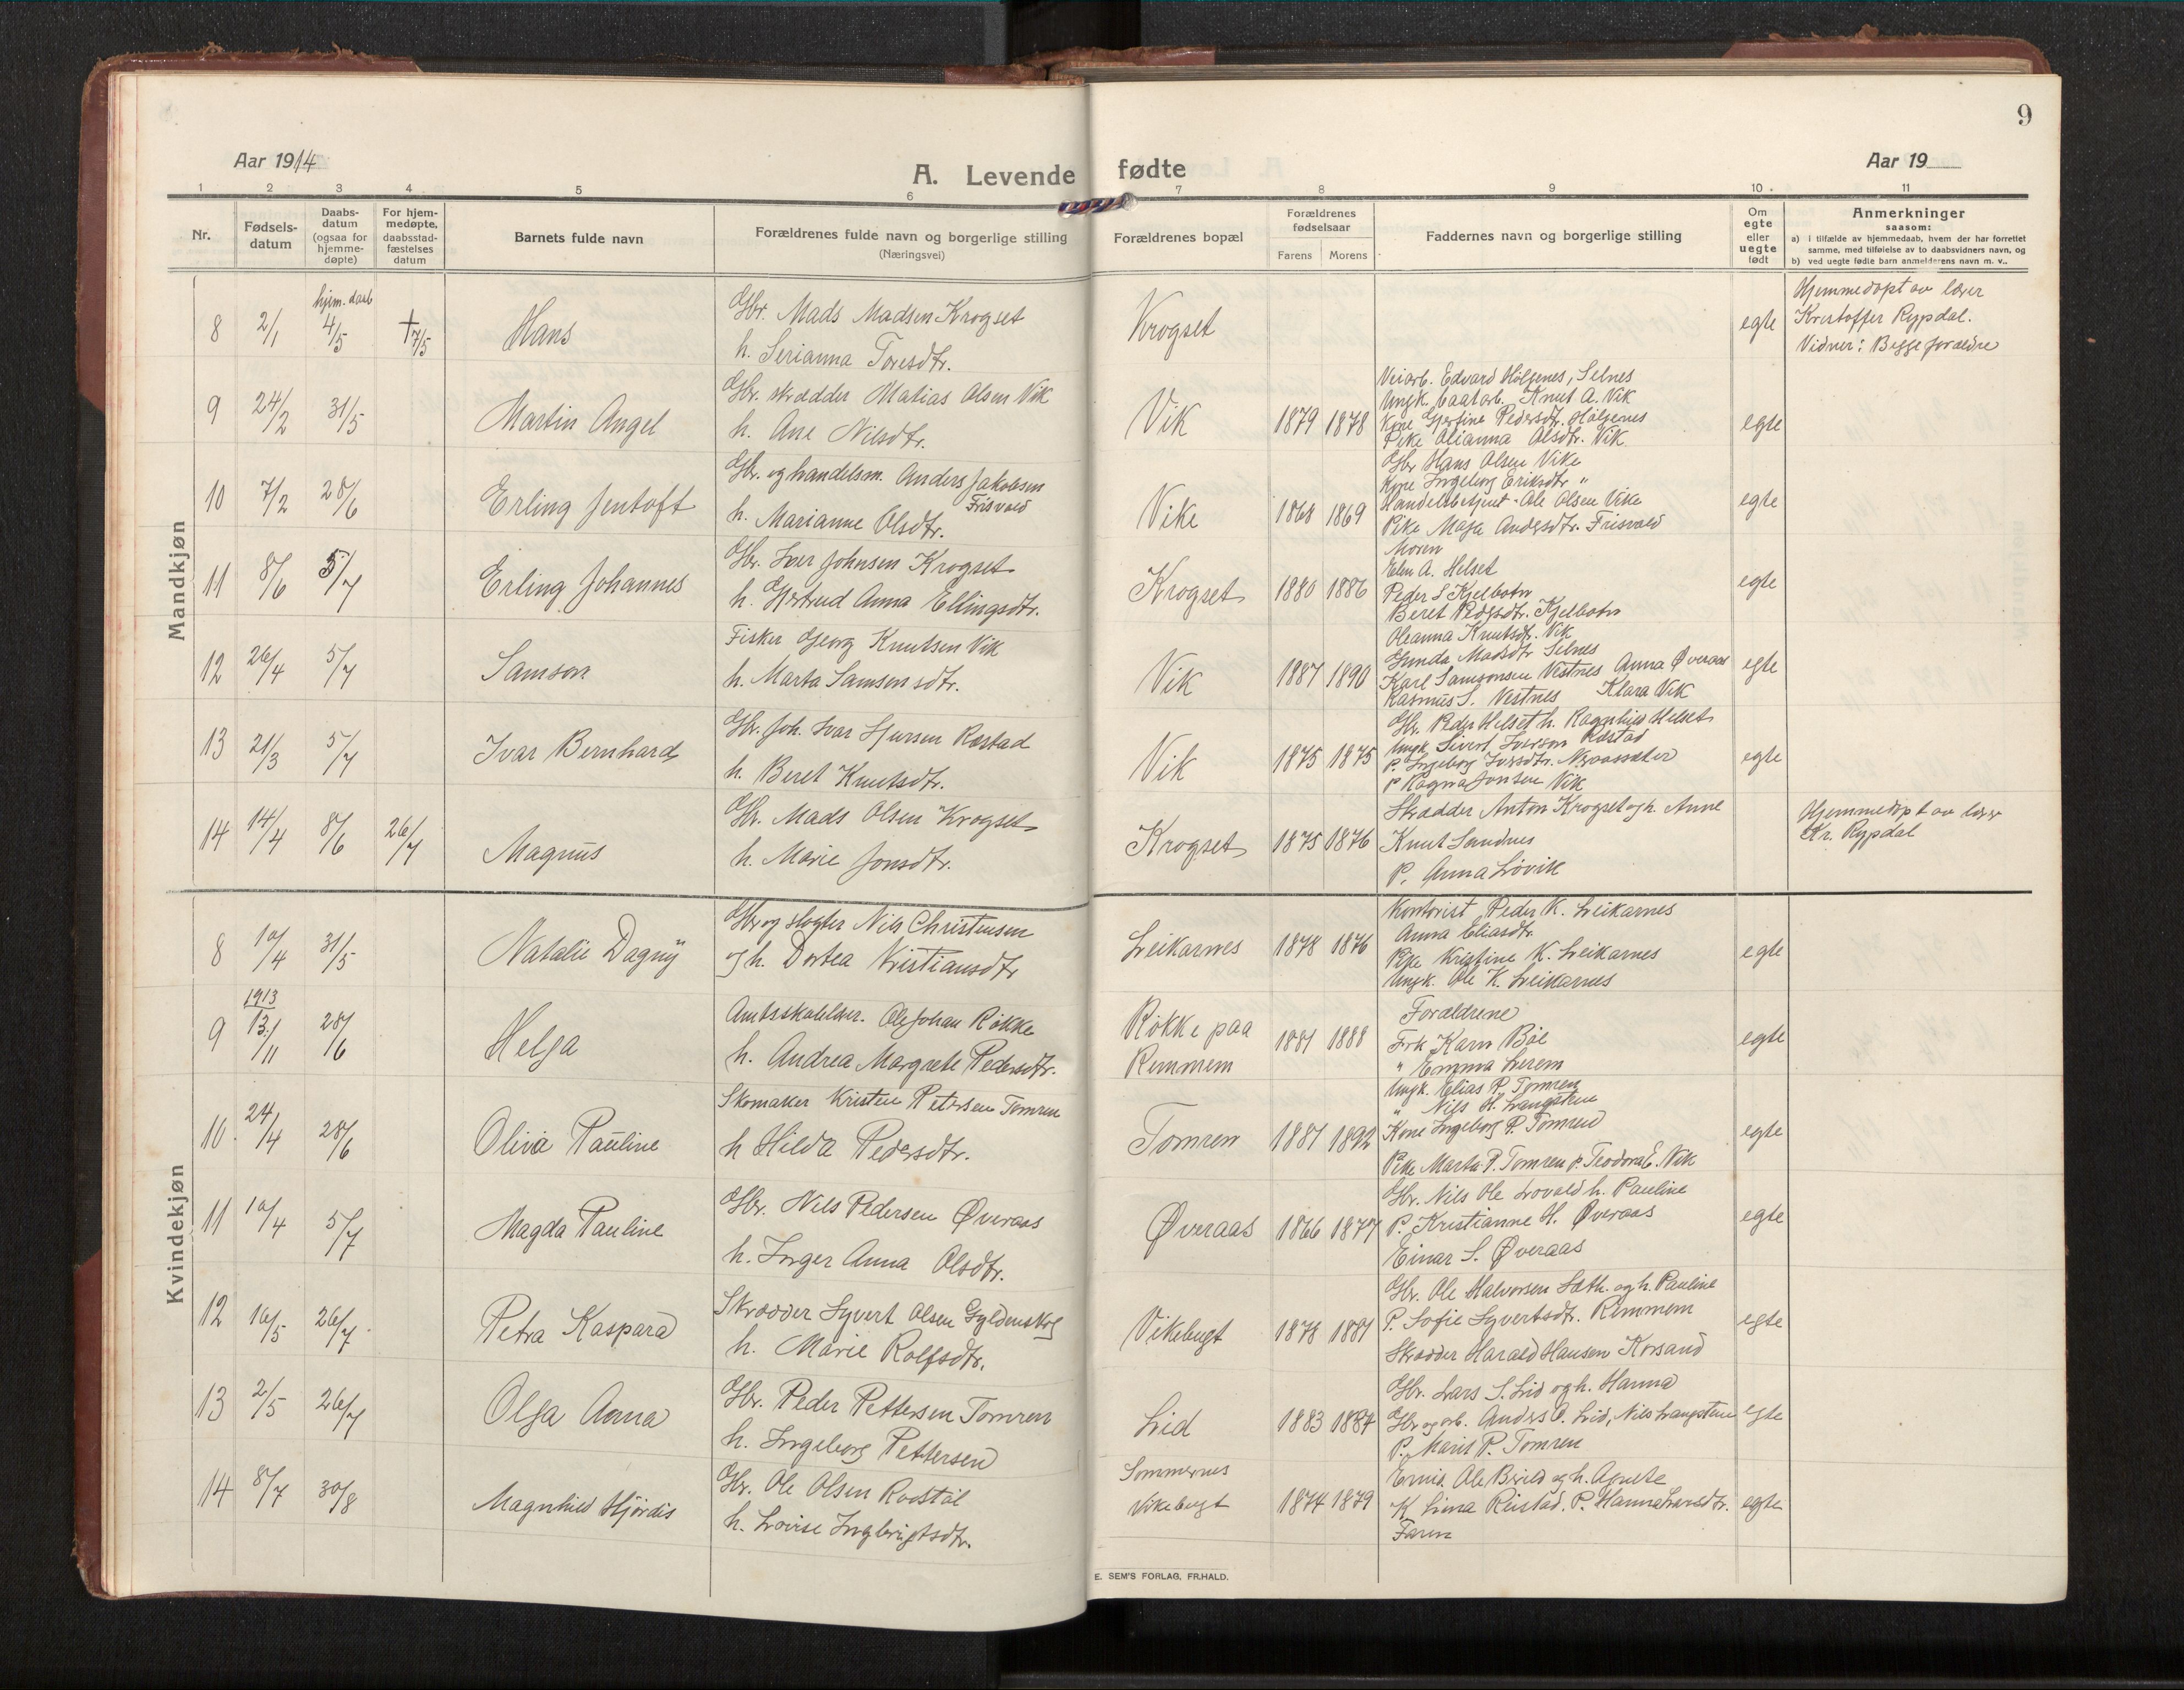 9
Aar 1914
A. Levende fødte
Aar 19
1 2 3 4 5 6 7 8 9 10 11
Nr.
Fødsels-
datum
Daabs-
datum
(ogsaa for
hjemme-
døpte)
For hjem-
medøpte,
daabsstad-
fæstelses
datum
Barnets fulde navn
Forældrenes fulde navn og borgerlige stilling
(Næringsvei)
Forældrenes bopæl
Forældrenes
fødselsaar
Farens Morens
Faddernes navn og borgerlige stilling
Om
egte
eller
uegte
født
Anmerkninger
saasom:
a) i tilfælde av hjemmedaab, hvem der har forrettet
samme, med tilføielse av to daabsvidners navn, og
b) ved uegte fødte barn anmelderens navn m. v..
Mandkjøn
8 2/1 hjem. daab 4/5 † 7/5 Hans
Gbr. Mads Madsen Krogset
h. Serianna Toresdtr.
Krogset
egte
Hjemmedøpt av lærer
Kristoffer Rypdal.
Vidner: Begge forældre
9 24/2 31/5 Martin Angel
Gbr. skrædder Matias Olsen Vik
h. Ane Nilsdtr.
Vik 1879 1878
Veiarb. Edvard Helgenes, Selnes
Ungk. baatarb. Knut A. Vik
Kone Gjertine Pedersdtr. Helgenes
Pike Olianna Olsdtr. Vik
egte
10 7/2 28/6 Erling Jentoft
Gbr. og handelsm. Anders Jakobsen
Frisvold
h. Marianne Olsdtr.
Vike 1868 1869
Gbr Hans Olsen Vike
Kone Ingeborg Eriksdtr "
Handelsbetjent Ole Olsen Vike
Pike Maja Andersdtr. Frisvold
Moren
egte
11 8/6 5/7 Erling Johannes
Gbr. Iver Johnsen Krogset
h. Gjertrud Anna Ellingsdtr.
Krogset 1880 1886
Elen A. Helset
Peder S Kjelbotn
Beret Pedersdtr. Kjelbotn
egte
12 26/4 5/7 Samson
Fisker Georg Knutsen Vik
h. Marta Samsonsdtr.
Vik 1887 1890
Oleanna Knutsdtr. Vik
Gunda Madsdtr Selnes
Karl Samsonsen Vestnes Anna Øveraas
Rasmus S. Vestnes Klara Vik
egte
13 21/3 5/7 Ivar Bernhard
Gbr. Joh. Ivar Sjursen Røstad
h. Beret Knutsdtr.
Vik 1875 1875
Gbr. Peder Helset h. Ragnhild Helset
Ungk. Sivert Iversen Røstad
P. Ingeborg Iversdtr.
P Ragna Jonsen Vik
egte
14 14/4 8/6 26/7 Magnus
Gbr. Mads Olsen Krogset
h. Marie Jonsdtr.
Krogset 1875 1876
Skrædder Anton Krogset og h. Anne
Knut Sandnes
P. Anna Løvik
Hjemmedøpt av lærer
Kr. Rypdal
Kvindekjøn
8 10/4 31/5 Natalie Dagny
Gbr og slagter Nils Christensen
og h. Dortea Kristiansdtr
Leikarnes 1878 1876
Kontorist Peder K. Leikarnes
Anna Eliasdtr.
Pike Kristine K. Leikarnes
Ungk. Ole K. Leikarnes
egte
9 1913 13/11 28/6 Helga
Amtsskolelær. Ole Johan Røkke
h. Andrea Margrete Pedersdtr.
Røkke paa
Remmem
1881 1888
Forældrene
Frk Karn Bøe
" Emma Lerem
egte
10. 24/4 28/6 Oliva Pauline
Skomaker Kristen Petersen Tomren
h Hilda Pedersdtr.
Tomren 1881 1892
Ungk. Elias P. Tomren
" Nils H. Langsten
Kone Ingeborg P. Tomren
Pike Marta P. Tomren p. Teodora E. Vik
egte
11 10/4 5/7 Magda Pauline
Gbr. Nils Pedersen Øveraas
h. Inger Anna Olsdtr.
Øveraas 1866 1877
Gbr. Nils Ole Lovold h. Pauline
P. Kristianne H. Øveraas
Einar S. Øveraas
egte
12 16/5 26/7 Petra Kaspara
Skrædder Syvert Olsen Gyldenskog
h. Marie Rolfsdtr.
Vikebugt 1878 1881
Gbr. Ole Halvorsen Sæth. og h. Pauline
P. Sofie Syvertsdtr. Remmem
Skrædder Harald Hansen Korsand
egte
13 2/5 26/7 Olga Anna
Gbr. Peder Pettersen Tomren
h. Ingeborg Pettersen
Lid 1883 1887
Gbr. Lars S. Lid og h. Hanna
Gbr og arb. Anders O. Lid, Nils Langsten
P. Marit P. Tomren
egte
14 8/7 30/8 Magnhild Hjørdis
Gbr. Ole Olsen Rødstøl
h. Lovise Ingebrigtsdtr.
Sommernes
Vikebugt
1874 1879
Ole og h. Agnete
K Lina Reistad, P. Hanna Larsdtr.
Faren
egte
E. SEM'S FORLAG, FR.HALD.